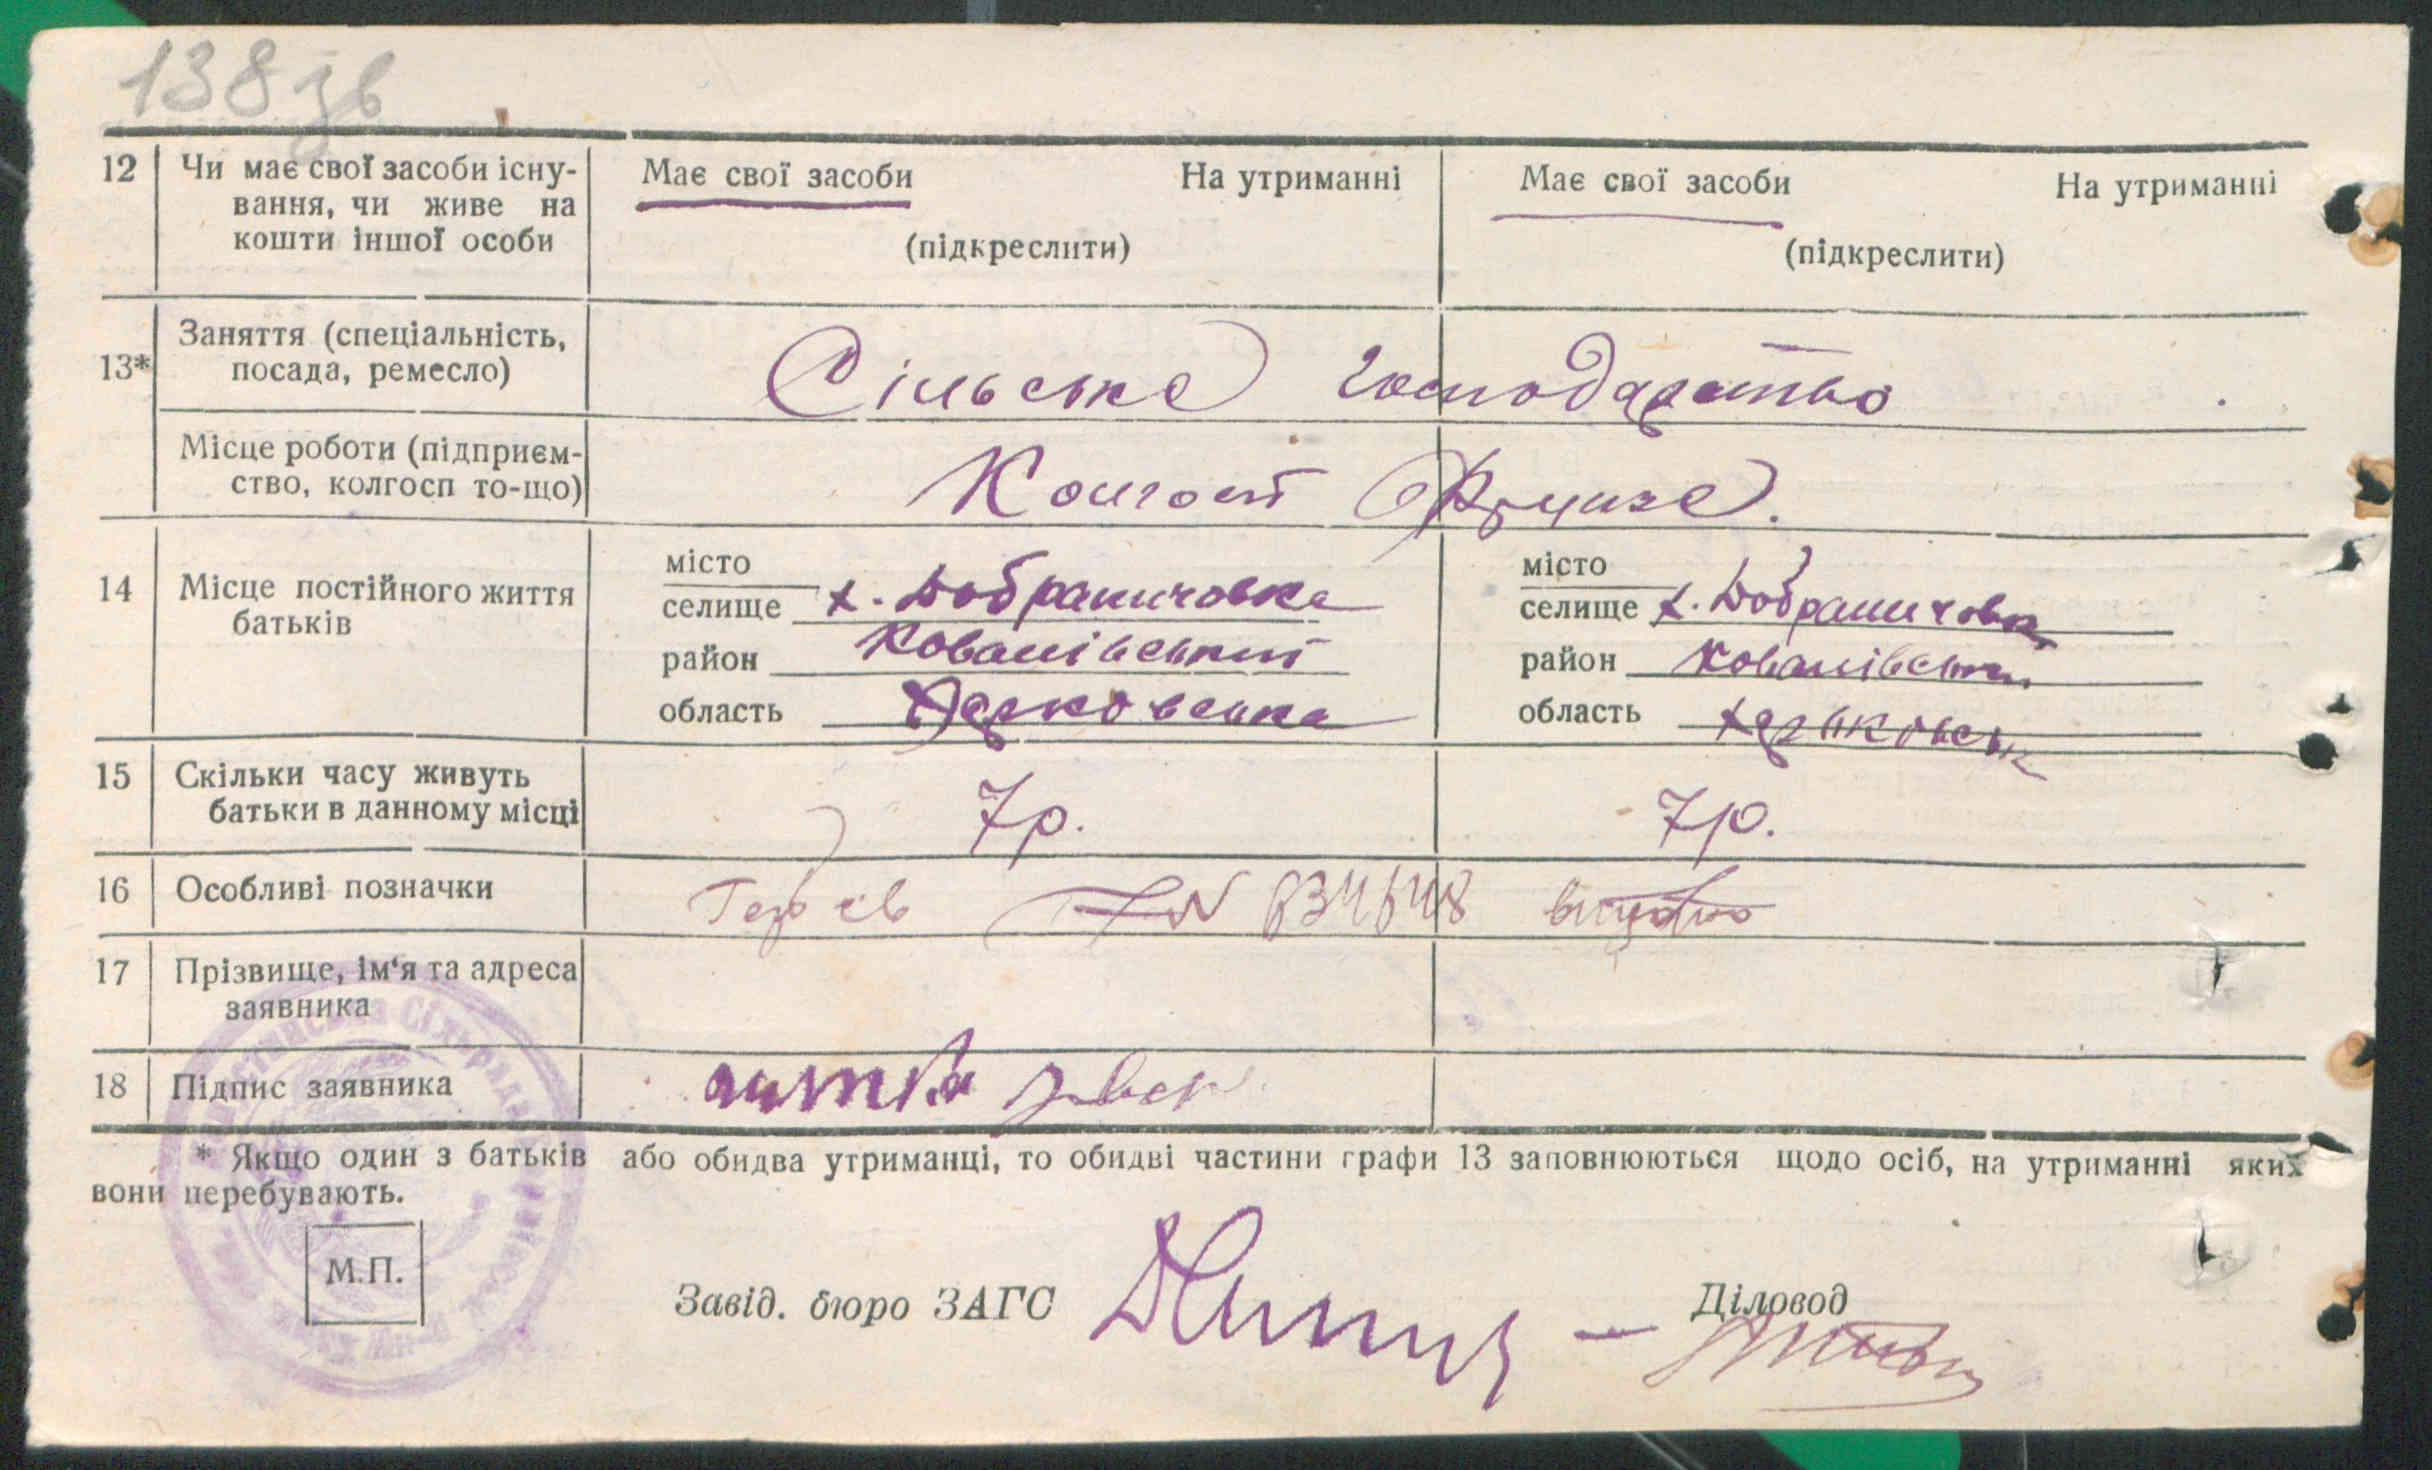 138 зв
12 Чи має свої засоби існу- Має свої засоби На утриманні Має свої засоби На утриманні
вання, чи живе на
кошти іншої особи (підкреслити) (підкреслити)
13* Заняття (спеціальність,
посада, ремесло) Сільське господарство
Місце роботи (підприєм-
ство, колгосп то-що) Колгосп Фрунзе.
14 Місце постійного життя
батьків
місто
селище х. Добраничовка
район
область Харковська
місто
селище х. Добраничовка
район
область Харьковськ
15 Скільки часу живуть
батьки в данному місці 7р. 7р.
16 Особливі позначки
17 Прізвище, ім'я та адреса
заявника
18 Підпис заявника
* Якщо один з батьків або обидва утриманці, то обидві частини графи 13 заповнюються щодо осіб, на утриманні яких
вони перебувають.
М.П.
Завід. бюро ЗАГС Діловод